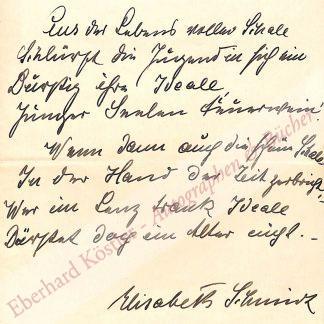 Aus des Lebens voller Schale
Schlürft die Jugend in sich ein
Durstig ihre Ideale,
Junger Seelen Feuerwein!
Wenn dann auch die schöne Schale
In der Hand der Zeit zerbricht
Wer im Lenz trank Ideale
Dürstet doch im Alter nicht. –
Elisabeth Schmidt
Eberhard Köstler - Autographen & Bücher